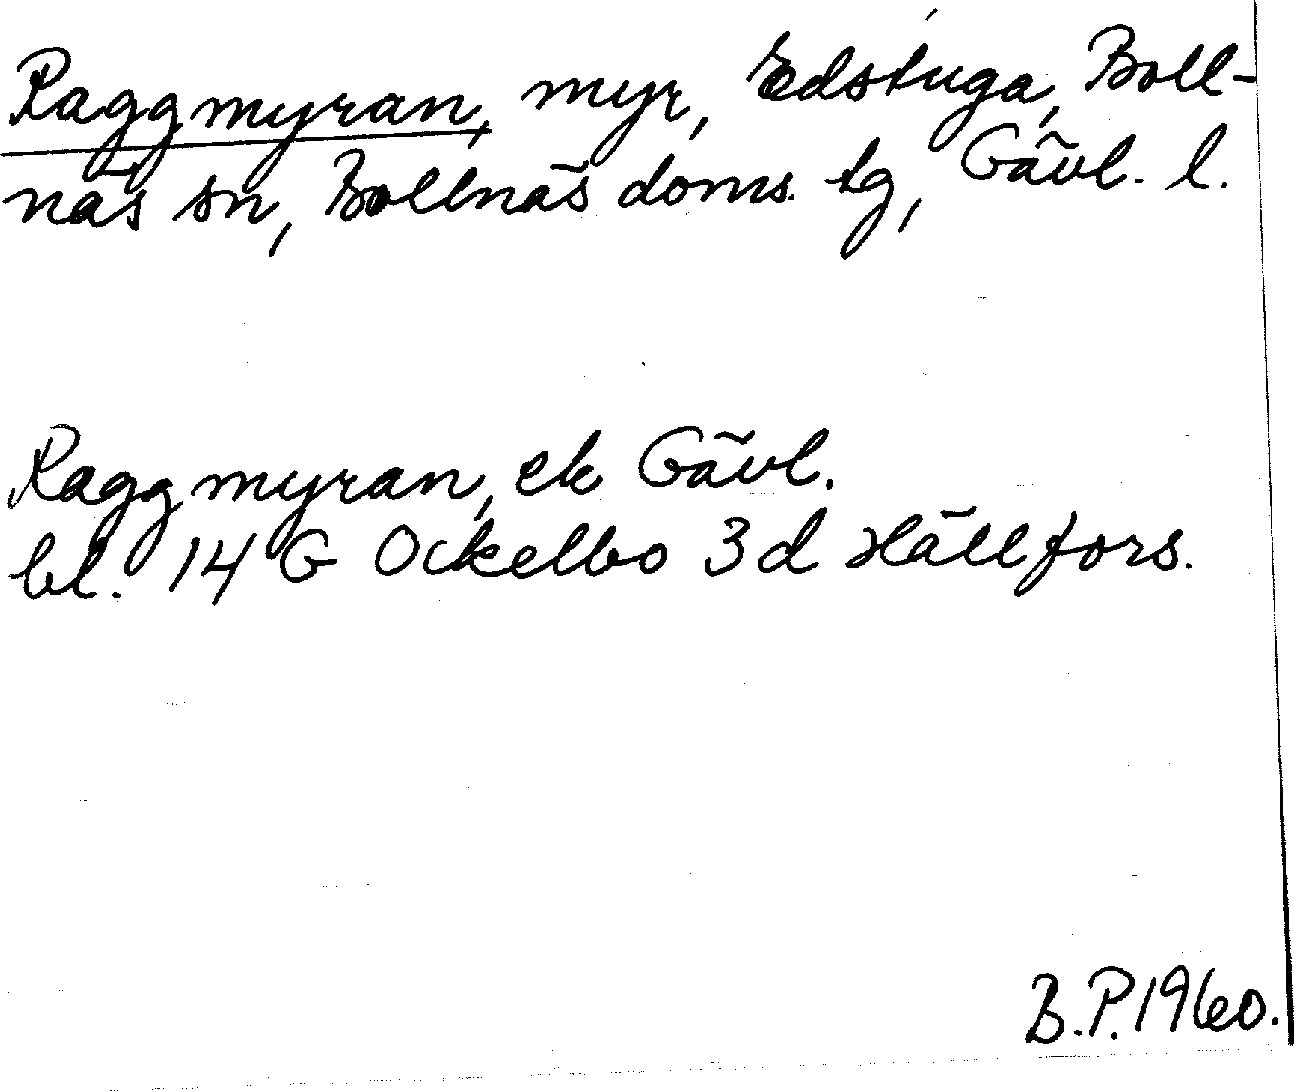 Raggmyran, myr, Edstuga, Boll-
näs sn, Bollnäs doms. tg, Gävl. l.
Raggmyran, ek Gävl.
bl. 14 G Ockelbo 3d Hällfors.
B.P. 1960.